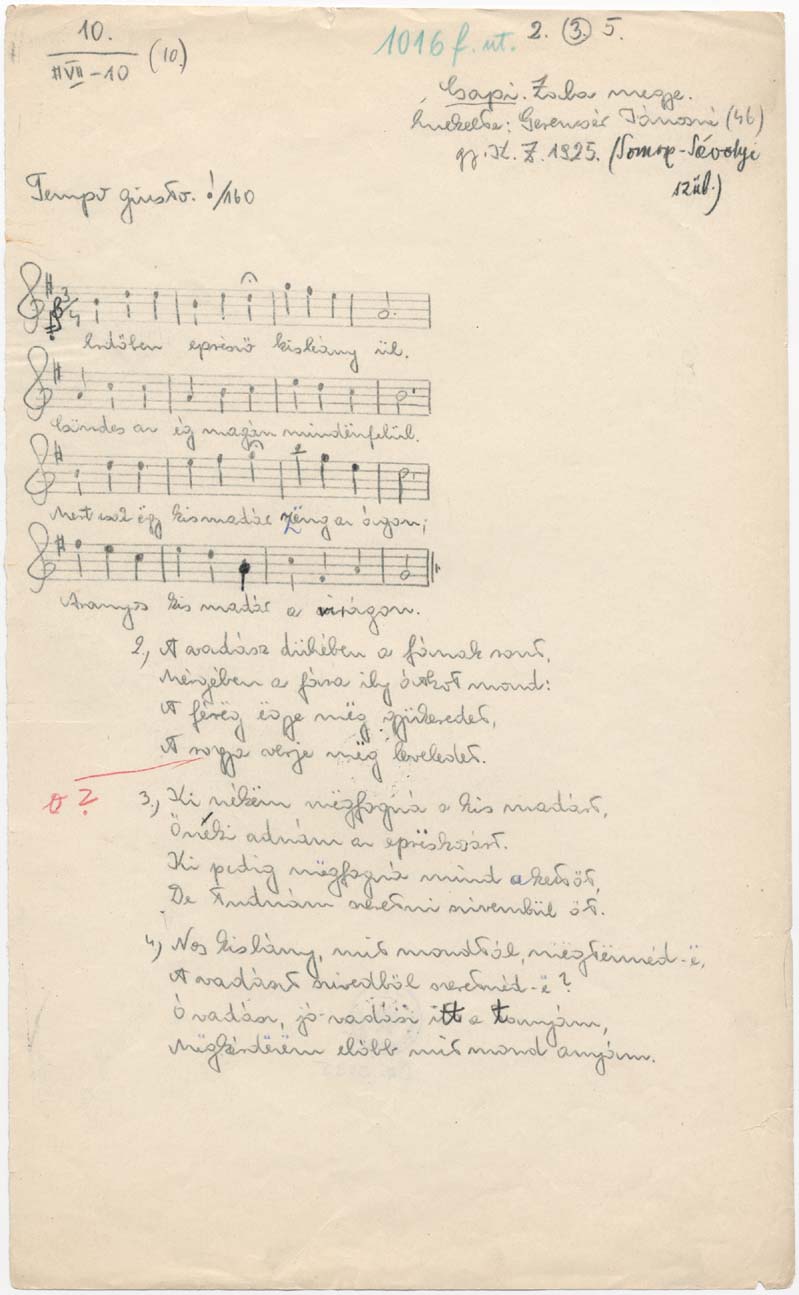 10.
VII - 10
(10.)
1016 f. út.
2. (3.) 5.
Csapi. Zala megye.
Énekelte: Gerencsér Jánosné (46)
gy. K. Z. 1925. (Somogy-Sávolyi
szül.)
Tempo giusto. /160
3/4
Erdőben eprésző kislány ül.
Csöndes az ég magán mindënfelül.
Mert csak ëgy kismadár zëng az ágon;
Aranyos kis madár a virágon.
2., A vadász dühében a fának ront,
Mérgében a fára ily átkot mond:
A férëg ëgye mëg gyükeredet,
A rogya verje mëg leveledet.
o?
3., Ki nékëm mëgfogná a kis madárt,
Őnéki adnám az eprëskosárt.
Ki pedig mëgfogná mind a kettőt,
De tudnám szeretni szivembül őt.
4., Nos kislány, mit mondtál, mëgtënnéd-ë,
A vadászt szivedből szeretnéd-ë?
Ó vadász, jó vadász itt a tanyám,
Mëgkérdëzëm előbb mit mond anyám.